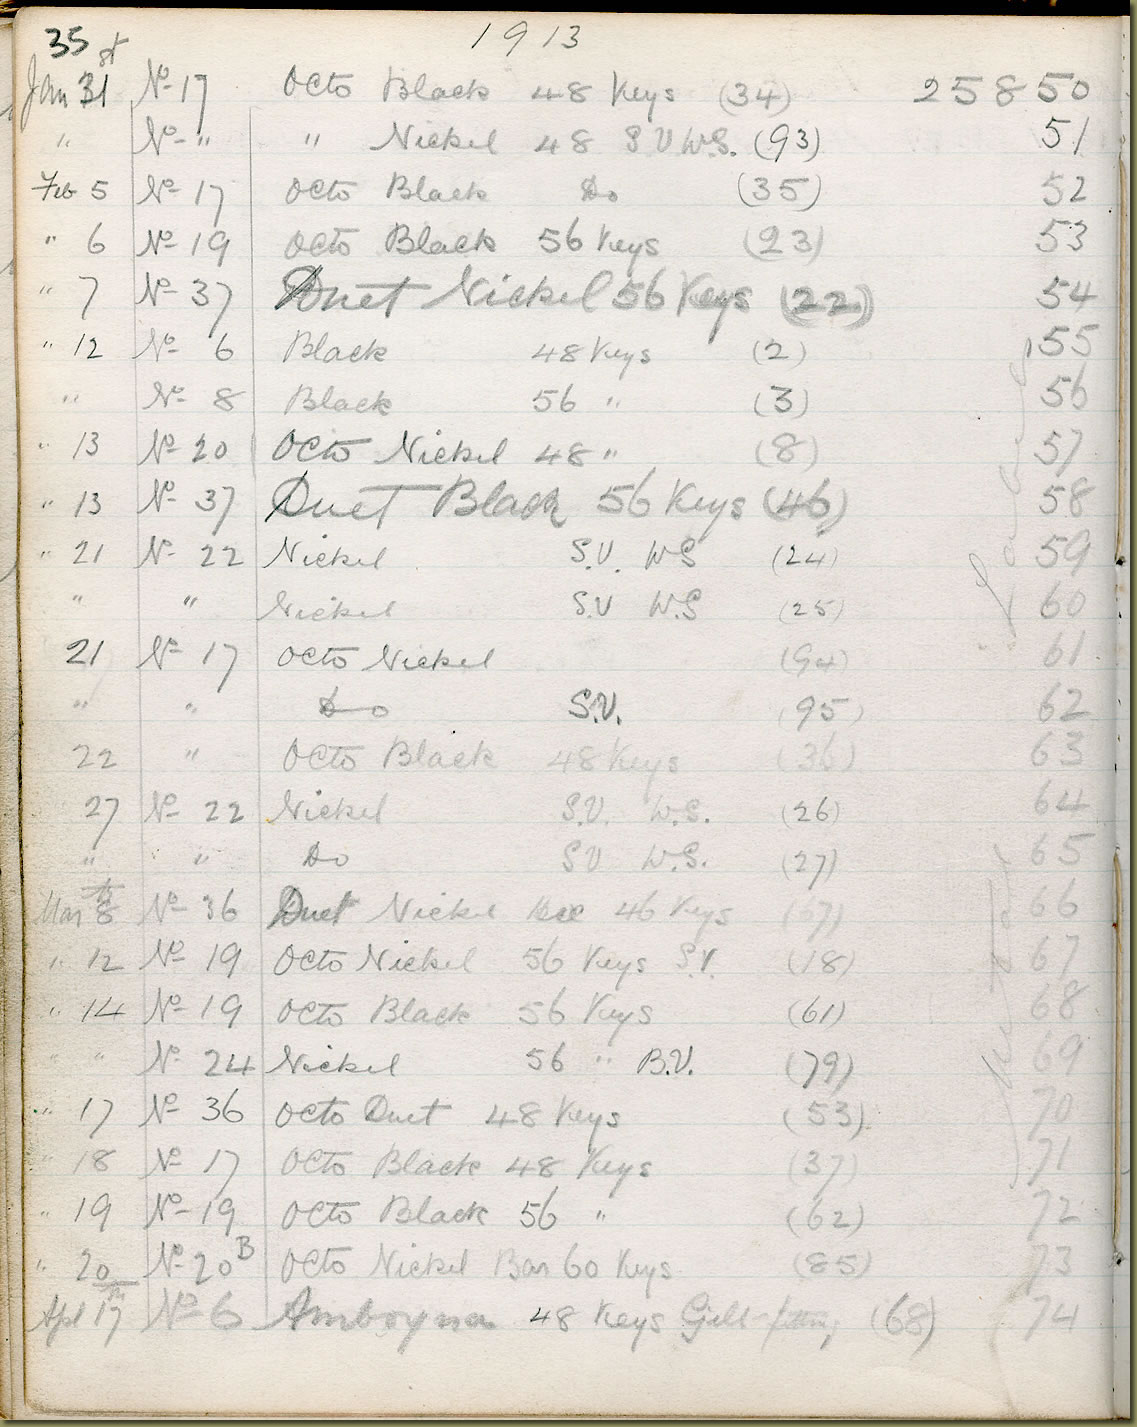 35
1913
Jan 31st No 17 Octo Black 48 Keys (34) 25850
" No " " Nickel 48 S.V W.S. (93) 51
Feb 5 No 17 Octo Black Do (35) 52
" 6 No 19 Octo Black 56 Keys (23) 53
" 7 No 37 Duet Nickel 56 Keys (22) 54
" 12 No 6 Black 48 Keys (2) 55
" No 8 Black 56 " (3) 56
" 13 No 20 Octo Nickel 48 " (8) 57
" 13 No 37 Duet Black 56 Keys (46) 58
" 21 No 22 Nickel S.V. W.S (24) 59
" " Nickel S.V W.S (25) 60
21 No 17 Octo Nickel (94) 61
" " Do S.V. (95) 62
22 " Octo Black 48 Keys (36) 63
27 No 22 Nickel S.V. W.S. (26) 64
" " Do S.V W.S. (27) 65
Mar 8th No 36 Duet Nickel 46 Keys (67) 66
" 12 No 19 Octo Nickel 56 Keys S.V. (18) 67
" 14 No 19 Octo Black 56 Keys (61) 68
" " No 24 Nickel 56 " B.V. (79) 69
" 17 No 36 Octo Duet 48 Keys (53) 70
" 18 No 17 Octo Black 48 Keys (37) 71
" 19 No 19 Octo Black 56 " (62) 72
" 20 No 20B Octo Nickel Bar 60 Keys (85) 73
Apl 17th No 6 Amboyna 48 Keys Gilt fitting (68) 74